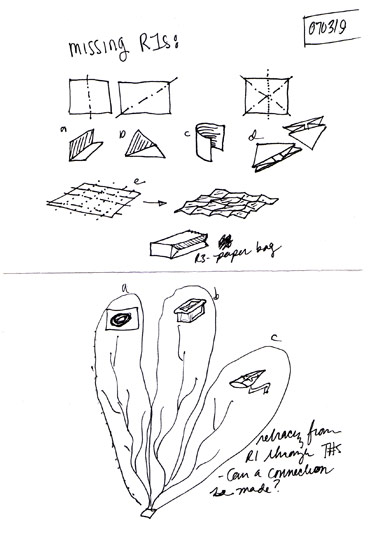 070319
missing R1s:
a
b
c
d
e
R3- paper bag
a
b
c
retracing from
R1 through THS
- Can a connection
be made?